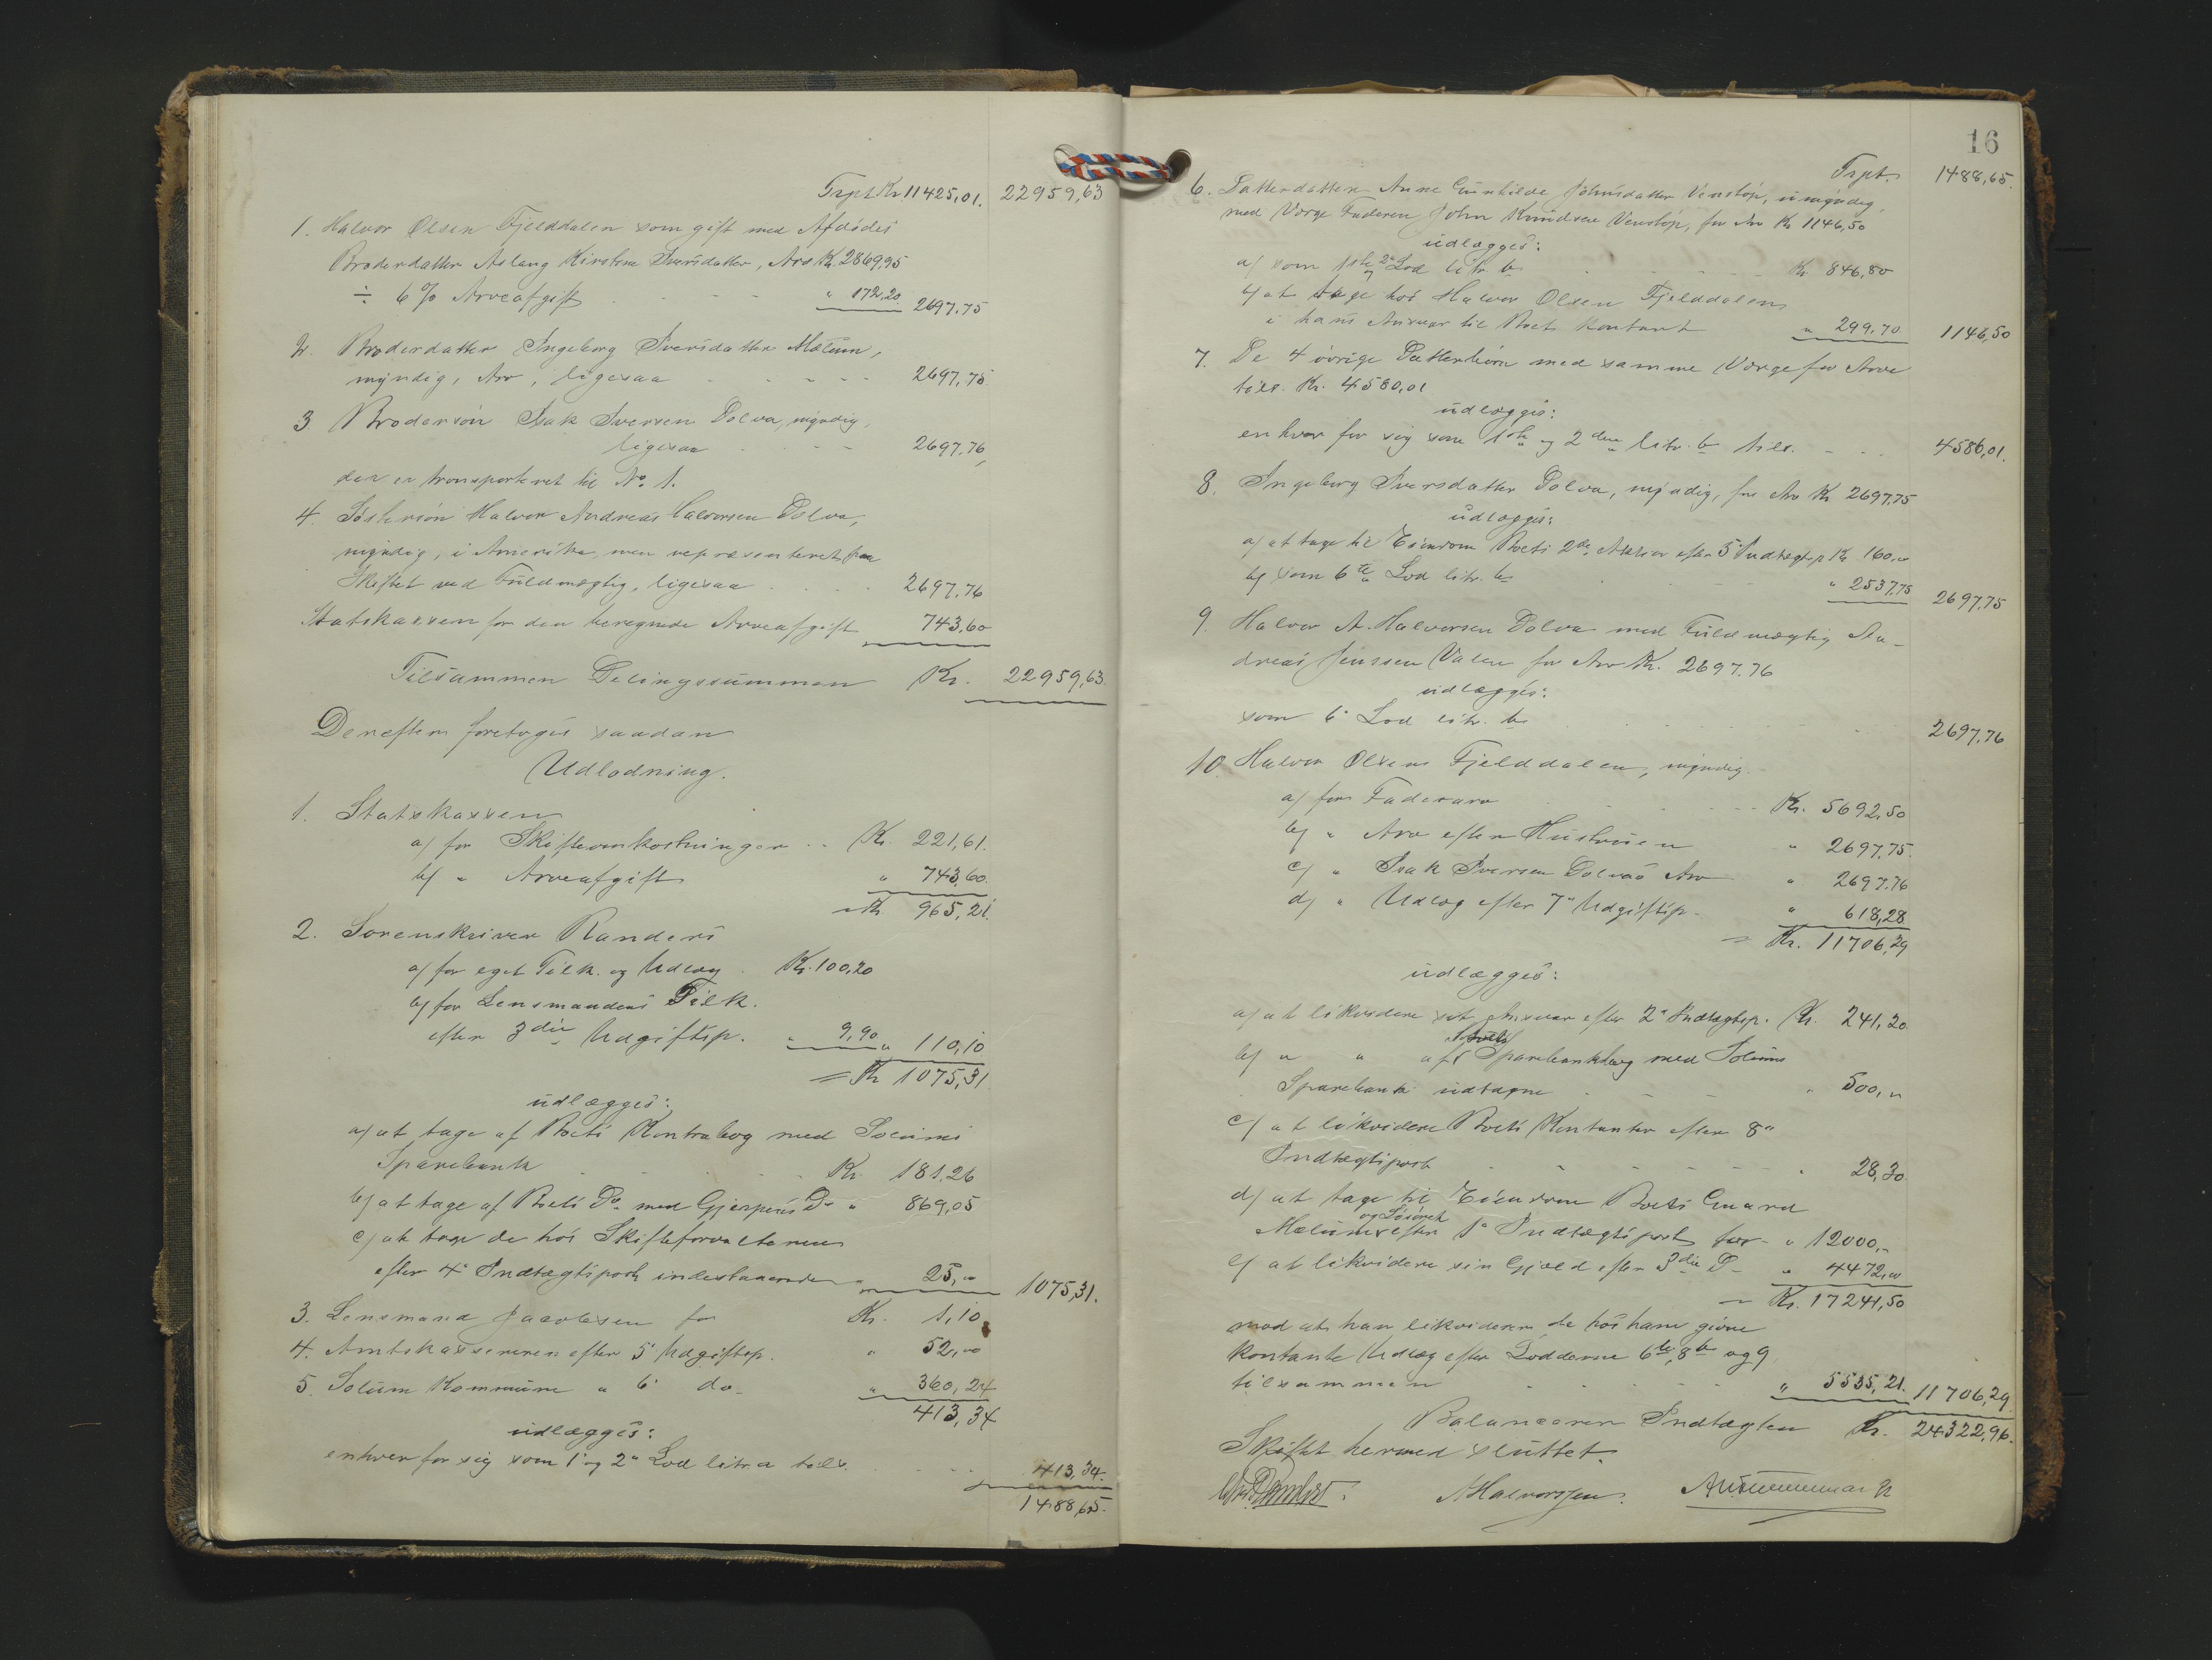 Trpt Kr 11425,01. 22959,63
1. Halvor Olsen Fjelddalen som gift med Afdødes
Broderdatter Aslaug Kirstine Iversdatter, Arv Kr. 2869,95
÷ 6 % Arveafgift " 172,20 2697.75
2. Broderdatter Ingeborg Iversdatter Mælum,
myndig, Arv, ligesaa 2697,75
3. Brodersøn Isak Iversen Dolva, myndig,
ligesaa 2697.76
der er transporteret til No. 1.
4. Søstersøn Halvor Andreas Halvorsen Dolva,
myndig, i Amerika, men repræsenteret paa
Skiftet ved Fuldmægtig, ligesaa 2697.76
Statskassen for den beregnede Arveafgift 743,60
Tilsammen Delingssummen Kr. 22959,63.
Derefter foretoges saadan
Udlodning.
1. Statskassen
a/ for Skifteomkostninger Kr. 221,61.
b/ " Arveafgift " 743,60.
= Kr 965,21.
2. Sorenskriver Randers
a/ for eget Tilk. og Udlæg Kr. 100,20
b/ for Lensmandens Tilk.
efter 3die Udgiftsp. " 9,90 " 110,10
= Kr 1075,31
udlægges:
a/ at tage af Boets Kontrabog med Solums
Sparebank Kr. 181.26
b/ at tage af Boets Do. med Gjerpens Do " 869,05
c/ at tage de hos Skifteforvalteren
efter 4" Indtægtspost indestaaende " 25,00 1075,31.
3. Lensmand Jacobsen for Kr. 1,10
4. Amtskassereren efter 5' Udgiftsp. " 52,00
5. Solum Kommune " 6' do. " 360,24
413,34
udlægges:
enhver for sig som 1' og 2" Lod litr. a tils. 413,34.
1488,65.
16
Trpt. 1488,65.
6. Datterdatter Anne Gunhilde Johnsdatter Venstøp, umyndig,
med Værge Faderen John Knudsen Venstøp, for Arv Kr 1146,50
udlægges:
a/ som 1ste og 2" Lod litr. b Kr 846,80
b/ at tage hos Halvor Olsen Fjelddalen
i hans Ansvar til Boet kontant " 299.70 1146,50
7. De 4 øvrige Datterbørn med samme Værge for Arve
tils. Kr. 4586,01
udlægges:
enhver for sig som 1ste og 2den litr. b tils. 4586,01.
8. Ingeborg Iversdatter Dolva, myndig, for Arv Kr 2697.75
udlægges:
a/ at tage til Eiendom Boets 2de Aktier efter 5' Indtægtsp Kr 160.00
b/ som 6te Lod litr. b " 2537.75 2697.75
9. Halvor A. Halvorsen Dolva med Fuldmægtig An-
dreas Jenssen Valen for Arv Kr. 2697.76
udlægges:
som 6' Lod litr. b 2697.76
10 Halvor Olsen Fjelddalen, myndig
a/ for Føderaar Kr. 5692,50
b/ " Arv efter Hustruen " 2697.75.
c/ " Isak Iversen Dolvas Arv " 2697.76
d/ " Udlæg efter 7" Udgiftsp. " 618,28
= Kr. 11706,29
udlægges:
a/ at likvidere sit Ansvar efter 2" Indtægtsp. Kr. 241,20
b/ " " af Sparebankbog med Solums
Sparebank udtagne " 500,"
c/ at likvidere Boets Kontanter efter 8"
Indtægtspost " 28,30.
d/ at tage til Eiendom Boets Gaard
Mælum og Løsøret efter 1" Indtægtspost for " 12000,-
e/ at likvidere sin Gjæld efter 3die D- " 4472,00
= Kr. 17241,50
mod at han likviderer de hos ham givne
kontante Udlæg efter Lodderne 6te, 8de og 9
tilsammen " 5535,21. 11706,29
Balancerer Indtægten Kr. 24322,96.
Skiftet hermed sluttet.
AHalvorssen.